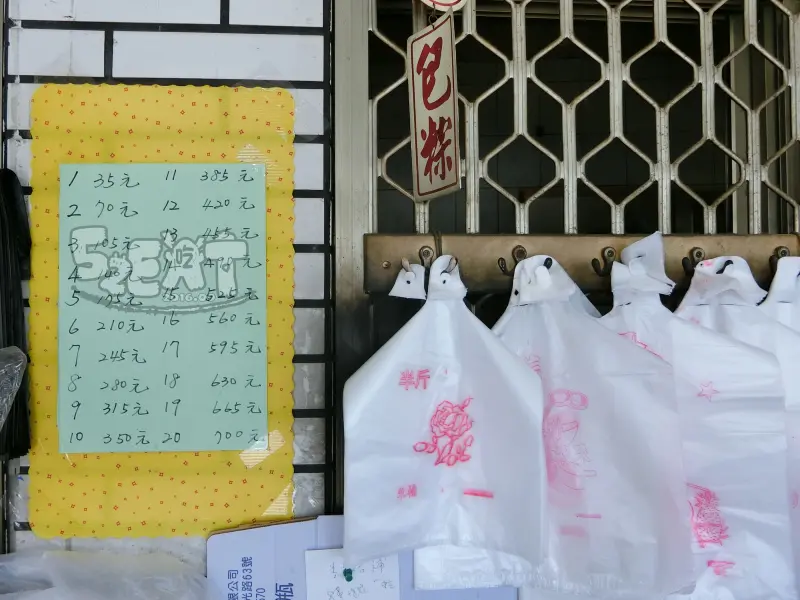 包粽
1 35元 11 385元
2 70元 12 420元
3 105元 13 455元
4 140元 14 490元
5 175元 15 525元
6 210元 16 560元
7 245元 17 595元
8 280元 18 630元
9 315元 19 665元
10 350元 20 700元
半斤
限公司
光路63號
瓶